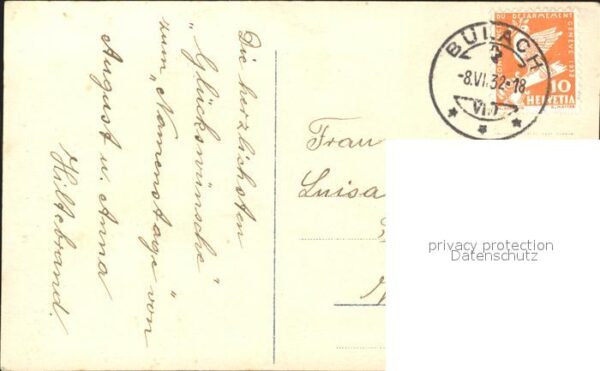 Die herzlichsten
„Glückswünsche“
zum „Namenstage“ von
August u. Anna
Hiltebrand.
Frau
Luisa
BÜLACH
-8.VI.32-18
VI
DU DESARMEMENT
GENEVE 1932
10
HELVETIA
privacy protection
Datenschutz